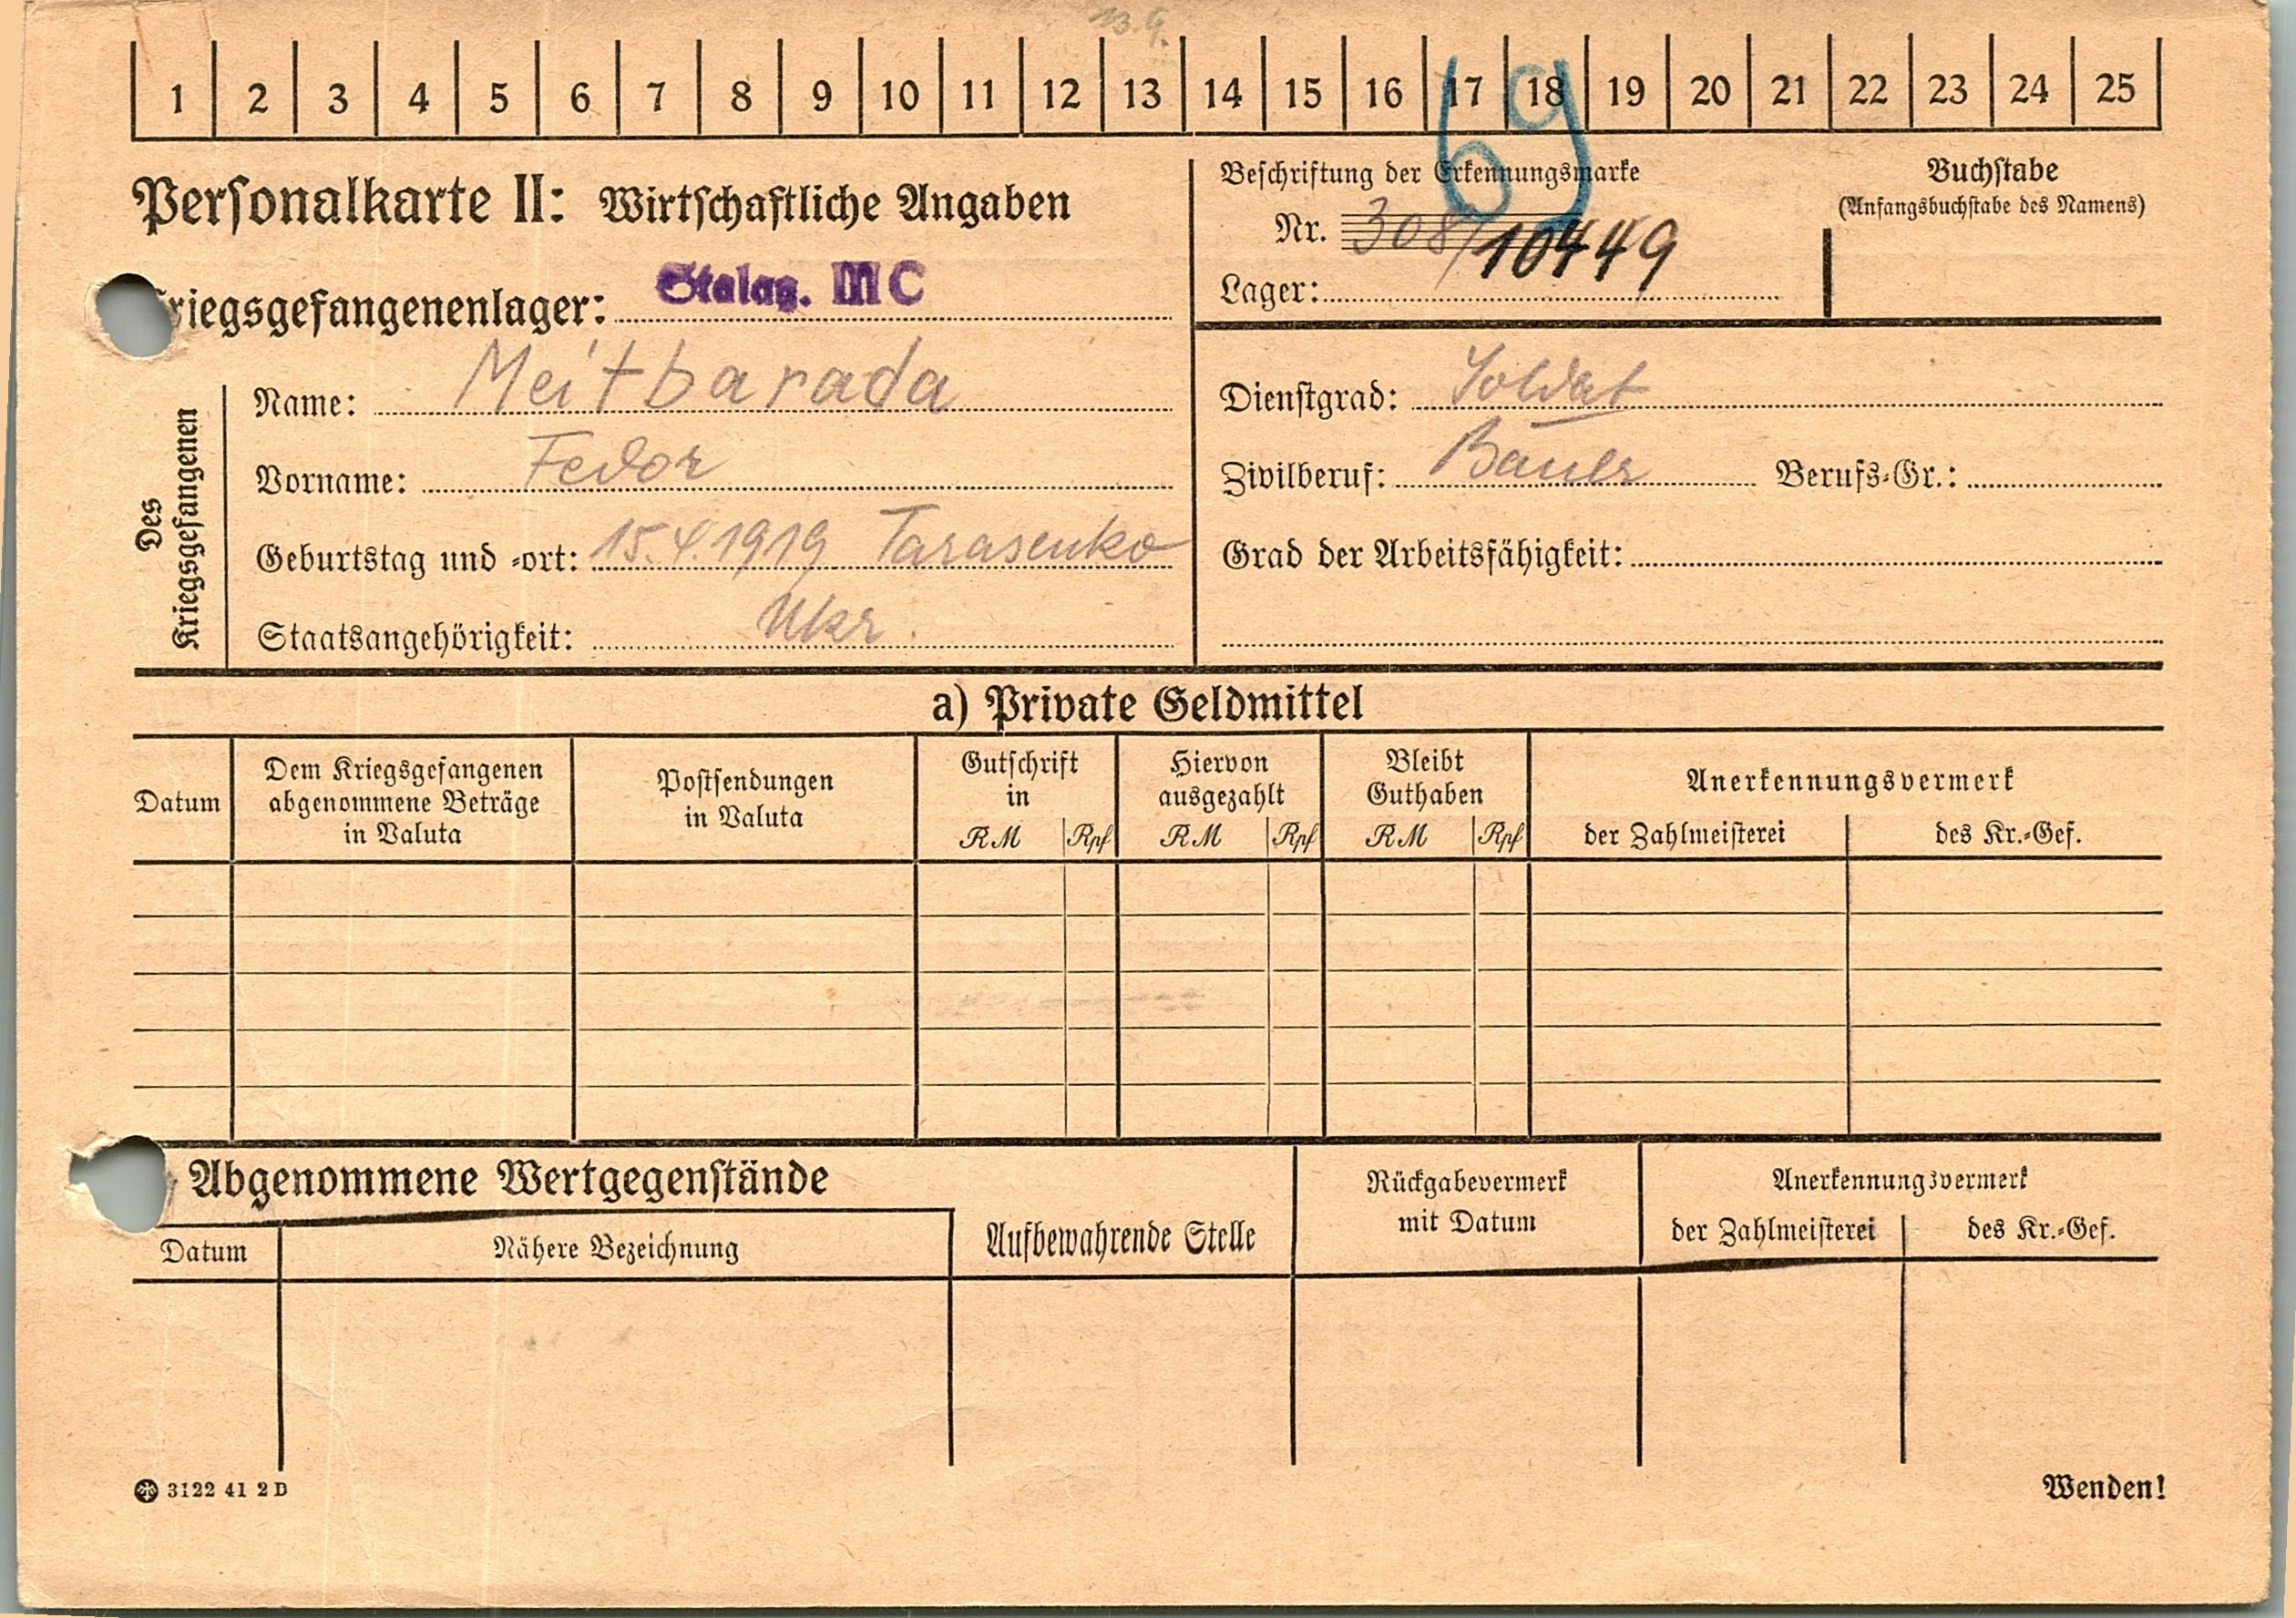 13.9.
1 2 3 4 5 6 7 8 9 10 11 12 13 14 15 16 17 18 19 20 21 22 23 24 25
69
Personalkarte II: Wirtschaftliche Angaben
Kriegsgefangenenlager: Stalag. III C
Beschriftung der Erkennungsmarke
Nr. 308/10449
Lager:
Buchstabe
(Anfangsbuchstabe des Namens)
Des
Kriegsgefangenen
Name: Meitbarada
Vorname: Fedor
Geburtstag und -ort: 15.4.1919 Tarasenko
Staatsangehörigkeit: Ukr.
Dienstgrad: Soldat
Zivilberuf: Bauer Berufs-Gr.:
Grad der Arbeitsfähigkeit:
a) Private Geldmittel
Datum
Dem Kriegsgefangenen
abgenommene Beträge
in Valuta
Postsendungen
in Valuta
Gutschrift
in
RM Rpf
Hiervon
ausgezahlt
RM Rpf
Bleibt
Guthaben
RM Rpf
Anerkennungsvermerk
der Zahlmeisterei des Kr.-Gef.
Abgenommene Wertgegenstände
Datum Nähere Bezeichnung
Aufbewahrende Stelle
Rückgabevermerk
mit Datum
Anerkennungsvermerk
der Zahlmeisterei des Kr.-Gef.
3122 41 2 D
Wenden!